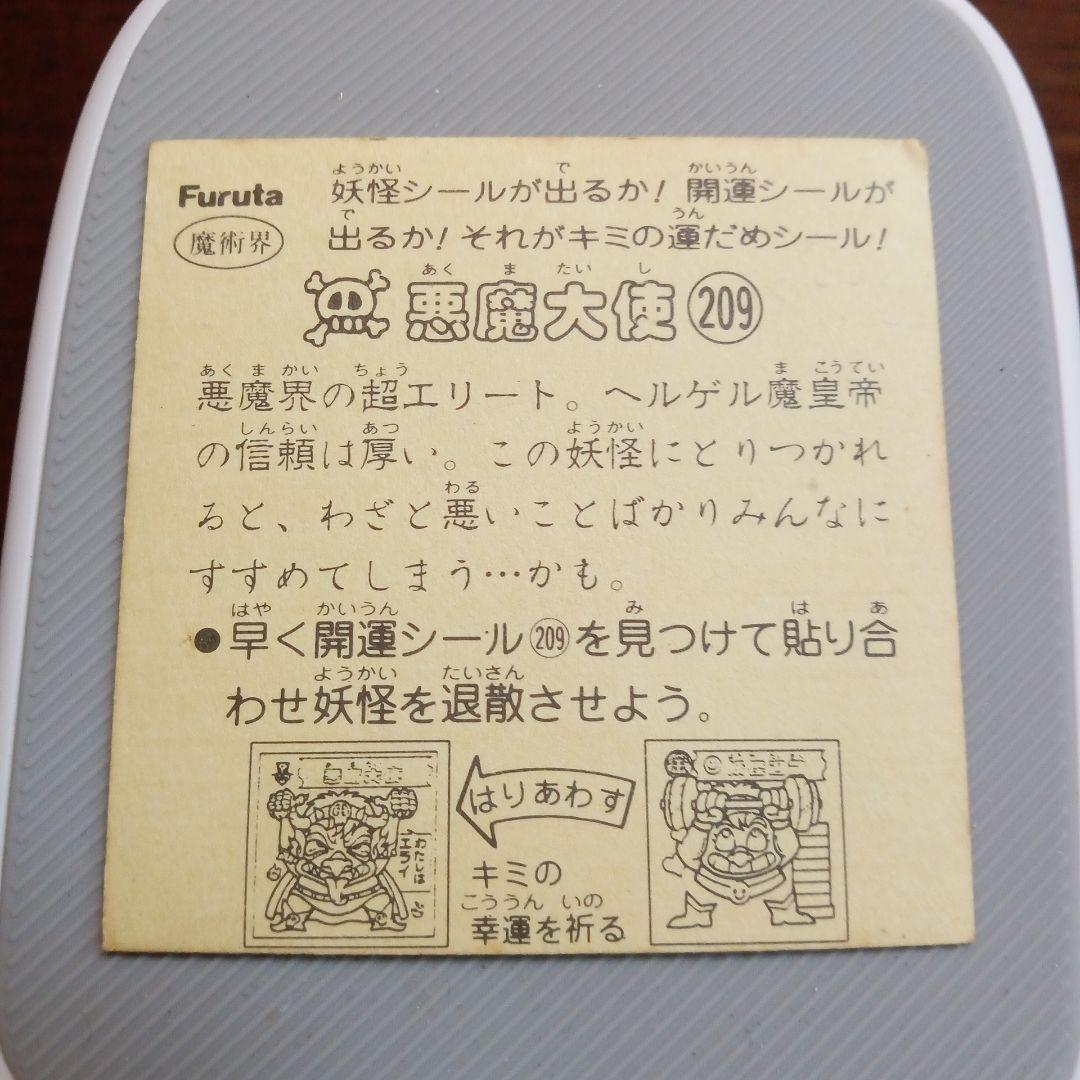 Furuta
魔術界
妖怪シールが出るか！開運シールが
出るか！それがキミの運だめシール！
悪魔大使 209
悪魔界の超エリート。ヘルゲル魔皇帝
の信頼は厚い。この妖怪にとりつかれ
ると、わざと悪いことばかりみんなに
すすめてしまう…かも。
●早く開運シール209を見つけて貼り合
わせ妖怪を退散させよう。
はりあわす
わたしは
エライ
キミの
幸運を祈る